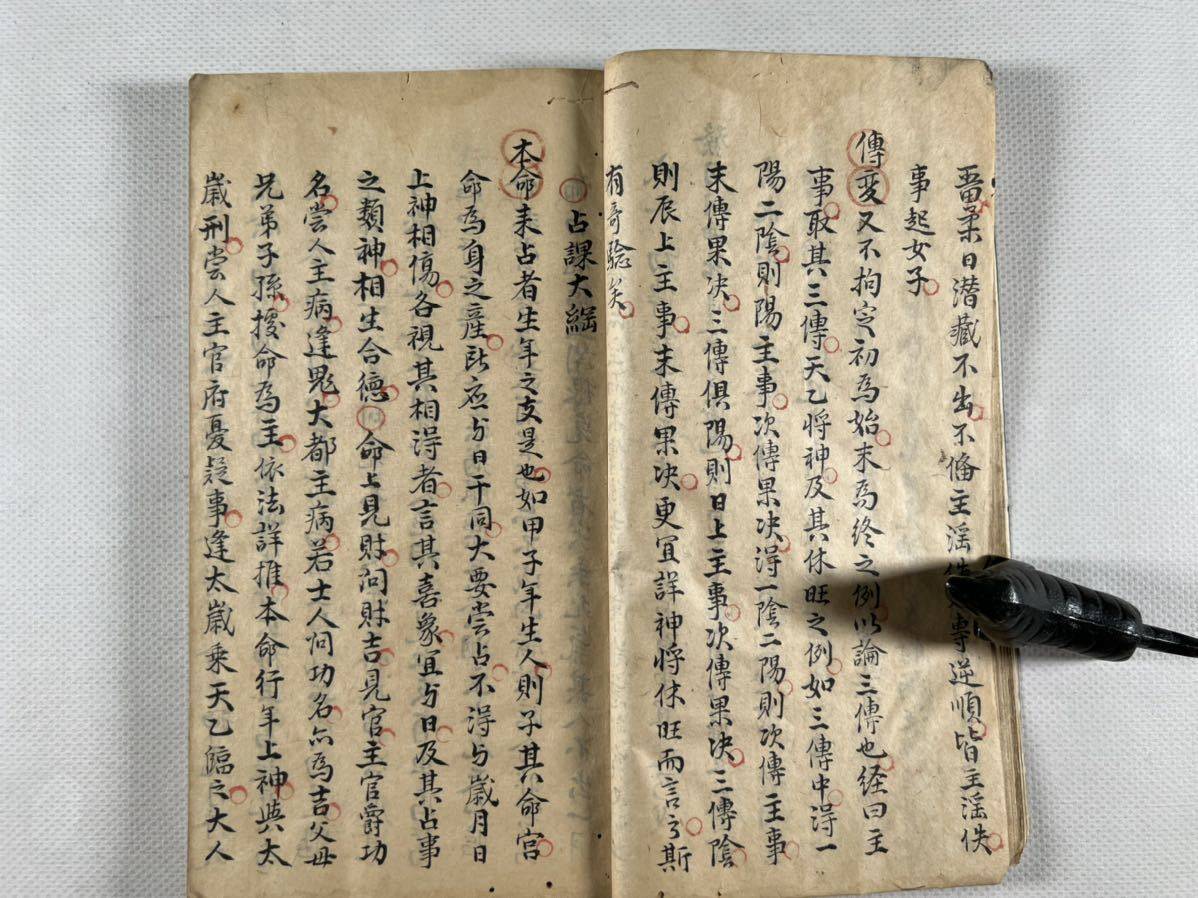 柔日潜藏不出不俻主滛佚專逆順皆主滛佚
事起女子
傳変又不拘定初為始末為终之例以論三傳也经曰主
事取其三傳天乙将神及其休旺之例如三傳中淂一
陽二陰則陽主事次傳果决淂一陰二陽則次傳主事
末傳果决三傳俱陽則日上主事次傳果决三傳陰
則辰上主事末傳果决更宜詳神将休旺而言之斯
有奇驗矣
占課大綱
本命来占者生年之支是也如甲子年生人則子其命宫
命為身之産訞应与日干同大要嘗占不淂与歲月日
上神相傷各視其相淂者言其喜象宜与日及其占事
之類神相生合德命上見財问財吉見官主官爵功
名嘗人主病逢鬼大都主病若士人问功名亦為吉父母
兄弟子孫援命為主依法詳推本命行年上神與太
歲刑嘗人主官府憂疑事逢太歲乘天乙臨之大人